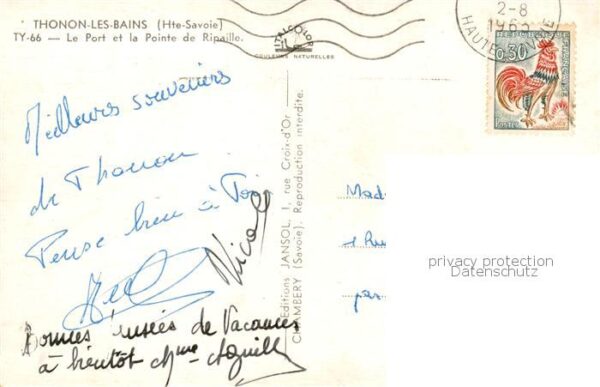 THONON-LES-BAINS (Hte-Savoie)
TY-66 — Le Port et la Pointe de Ripaille.
TRICOLOR
COULEURS NATURELLES
2-8
1965
HAUTE
0,30
POSTES
Meilleurs souvenirs
de Thonon
Pense bien à Toi
Nicole
Bonnes de Vacances
à bientôt Mme
Editions JANSOL, 1, rue Croix-d'Or
CHAMBERY (Savoie). Reproduction interdite.
Mad
1 Rue
par
privacy protection
Datenschutz